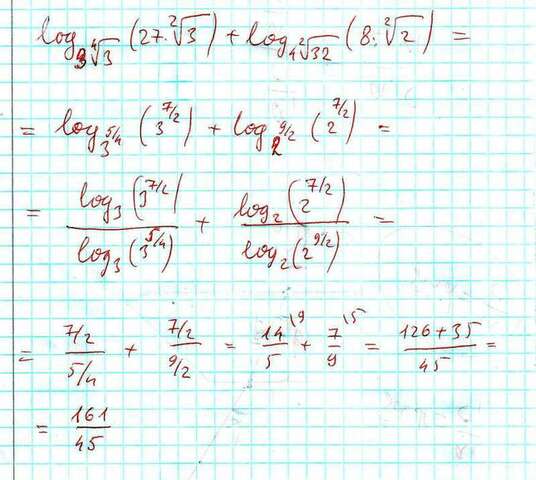 log_{3∜3} (27·²√3) + log_{4²√32} (8·²√2) =
= log_{3^{5/4}} (3^{7/2}) + log_{2^{9/2}} (2^{7/2}) =
= log₃(3^{7/2}) / log₃(3^{5/4}) + log₂(2^{7/2}) / log₂(2^{9/2}) =
= (7/2)/(5/4) + (7/2)/(9/2) = 14/5 \9 + 7/9 \5 = (126+35)/45 =
= 161/45